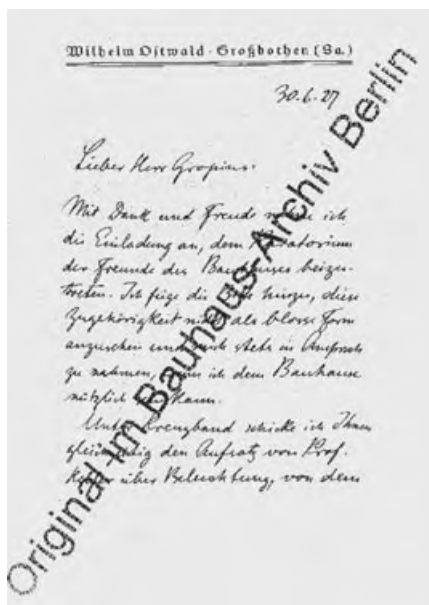 Wilhelm Ostwald · Großbothen (Sa.)
30.6.27
Lieber Herr Gropius.
Mit Dank und Freude nehme ich
die Einladung an, dem Kuratorium
der Freunde des Bauhauses beizu-
treten. Ich füge die Bitte hinzu, diese
Zugehörigkeit nicht als blosse Form
anzusehen und mich stets in Anspruch
zu nehmen, wenn ich dem Bauhause
nützlich sein kann.
Unter Kreuzband schicke ich Ihnen
gleichzeitig den Aufsatz von Prof.
über Beleuchtung, von dem
Original im Bauhaus-Archiv Berlin